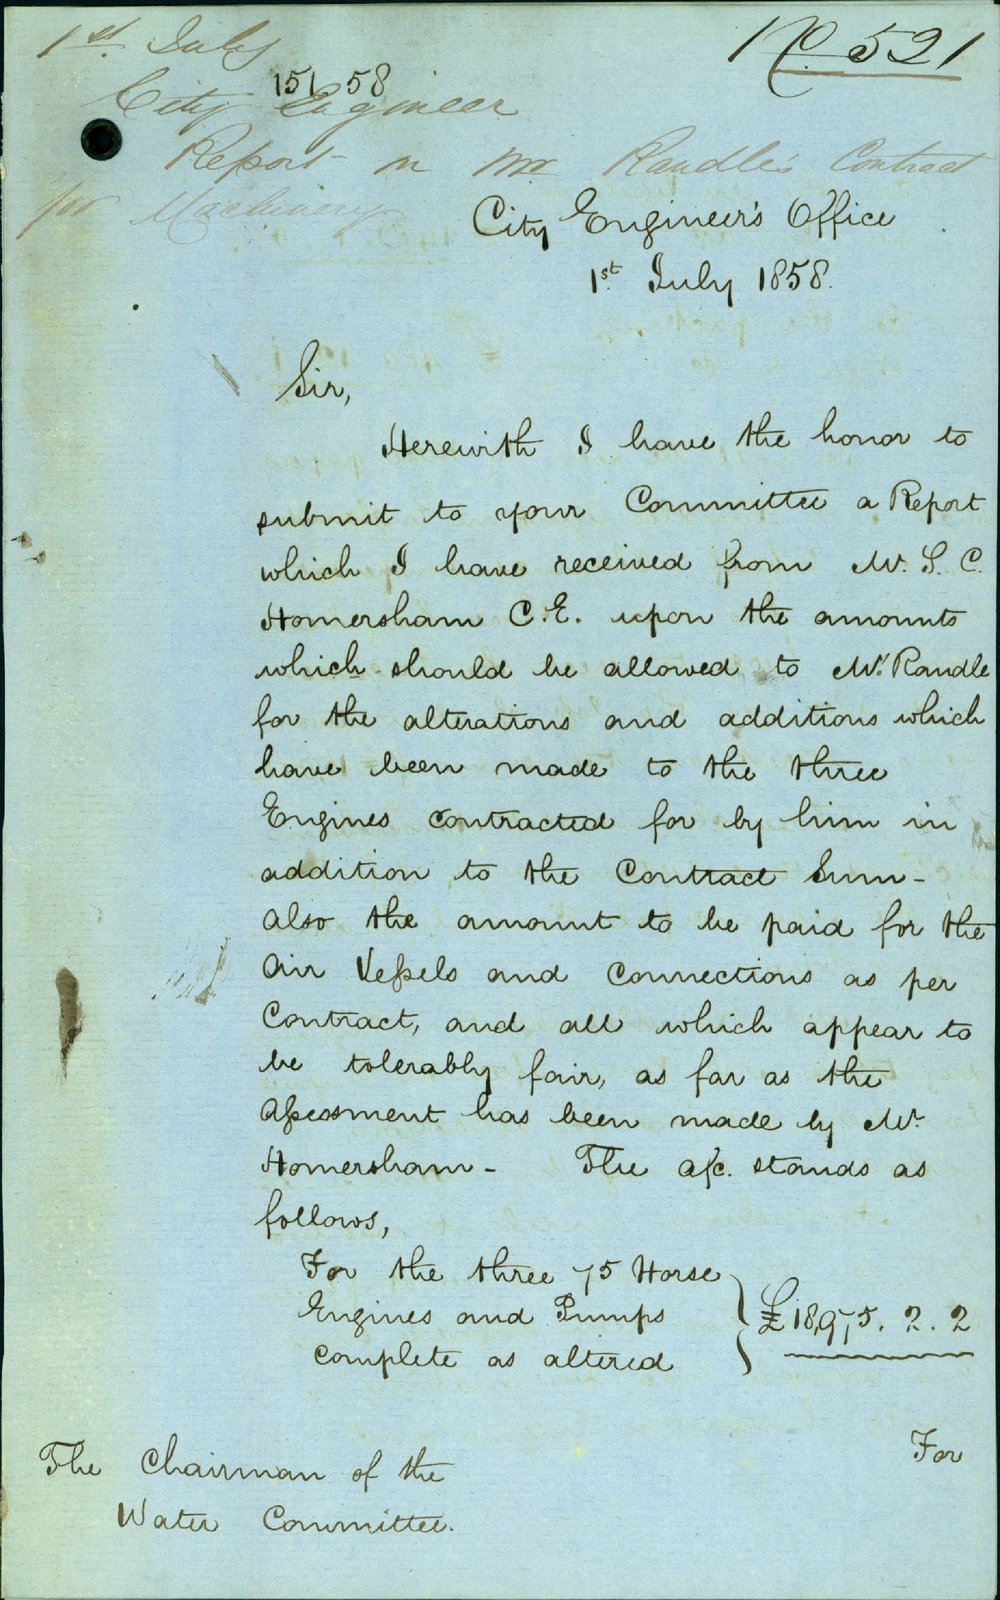 1st. July
No 521
151 58
City Engineer
Report on Mr Randle's Contract
for Machinery
City Engineer's Office
1st July 1858.
Sir,
Herewith I have the honor to
submit to your Committee a Report
which I have received from Mr. S. C.
Homersham C.E. upon the amounts
which should be allowed to Mr. Randle
for the alterations and additions which
have been made to the three
Engines contracted for by him in
addition to the Contract Sum -
also the amount to be paid for the
Air Vessels and Connections as per
Contract, and all which appear to
be tolerably fair, as far as the
Assessment has been made by Mr.
Homersham - The a/c. stands as
follows,
For the three 75 Horse
Engines and Pumps
complete as altered } £18,975. 2. 2
For
The Chairman of the
Water Committee.